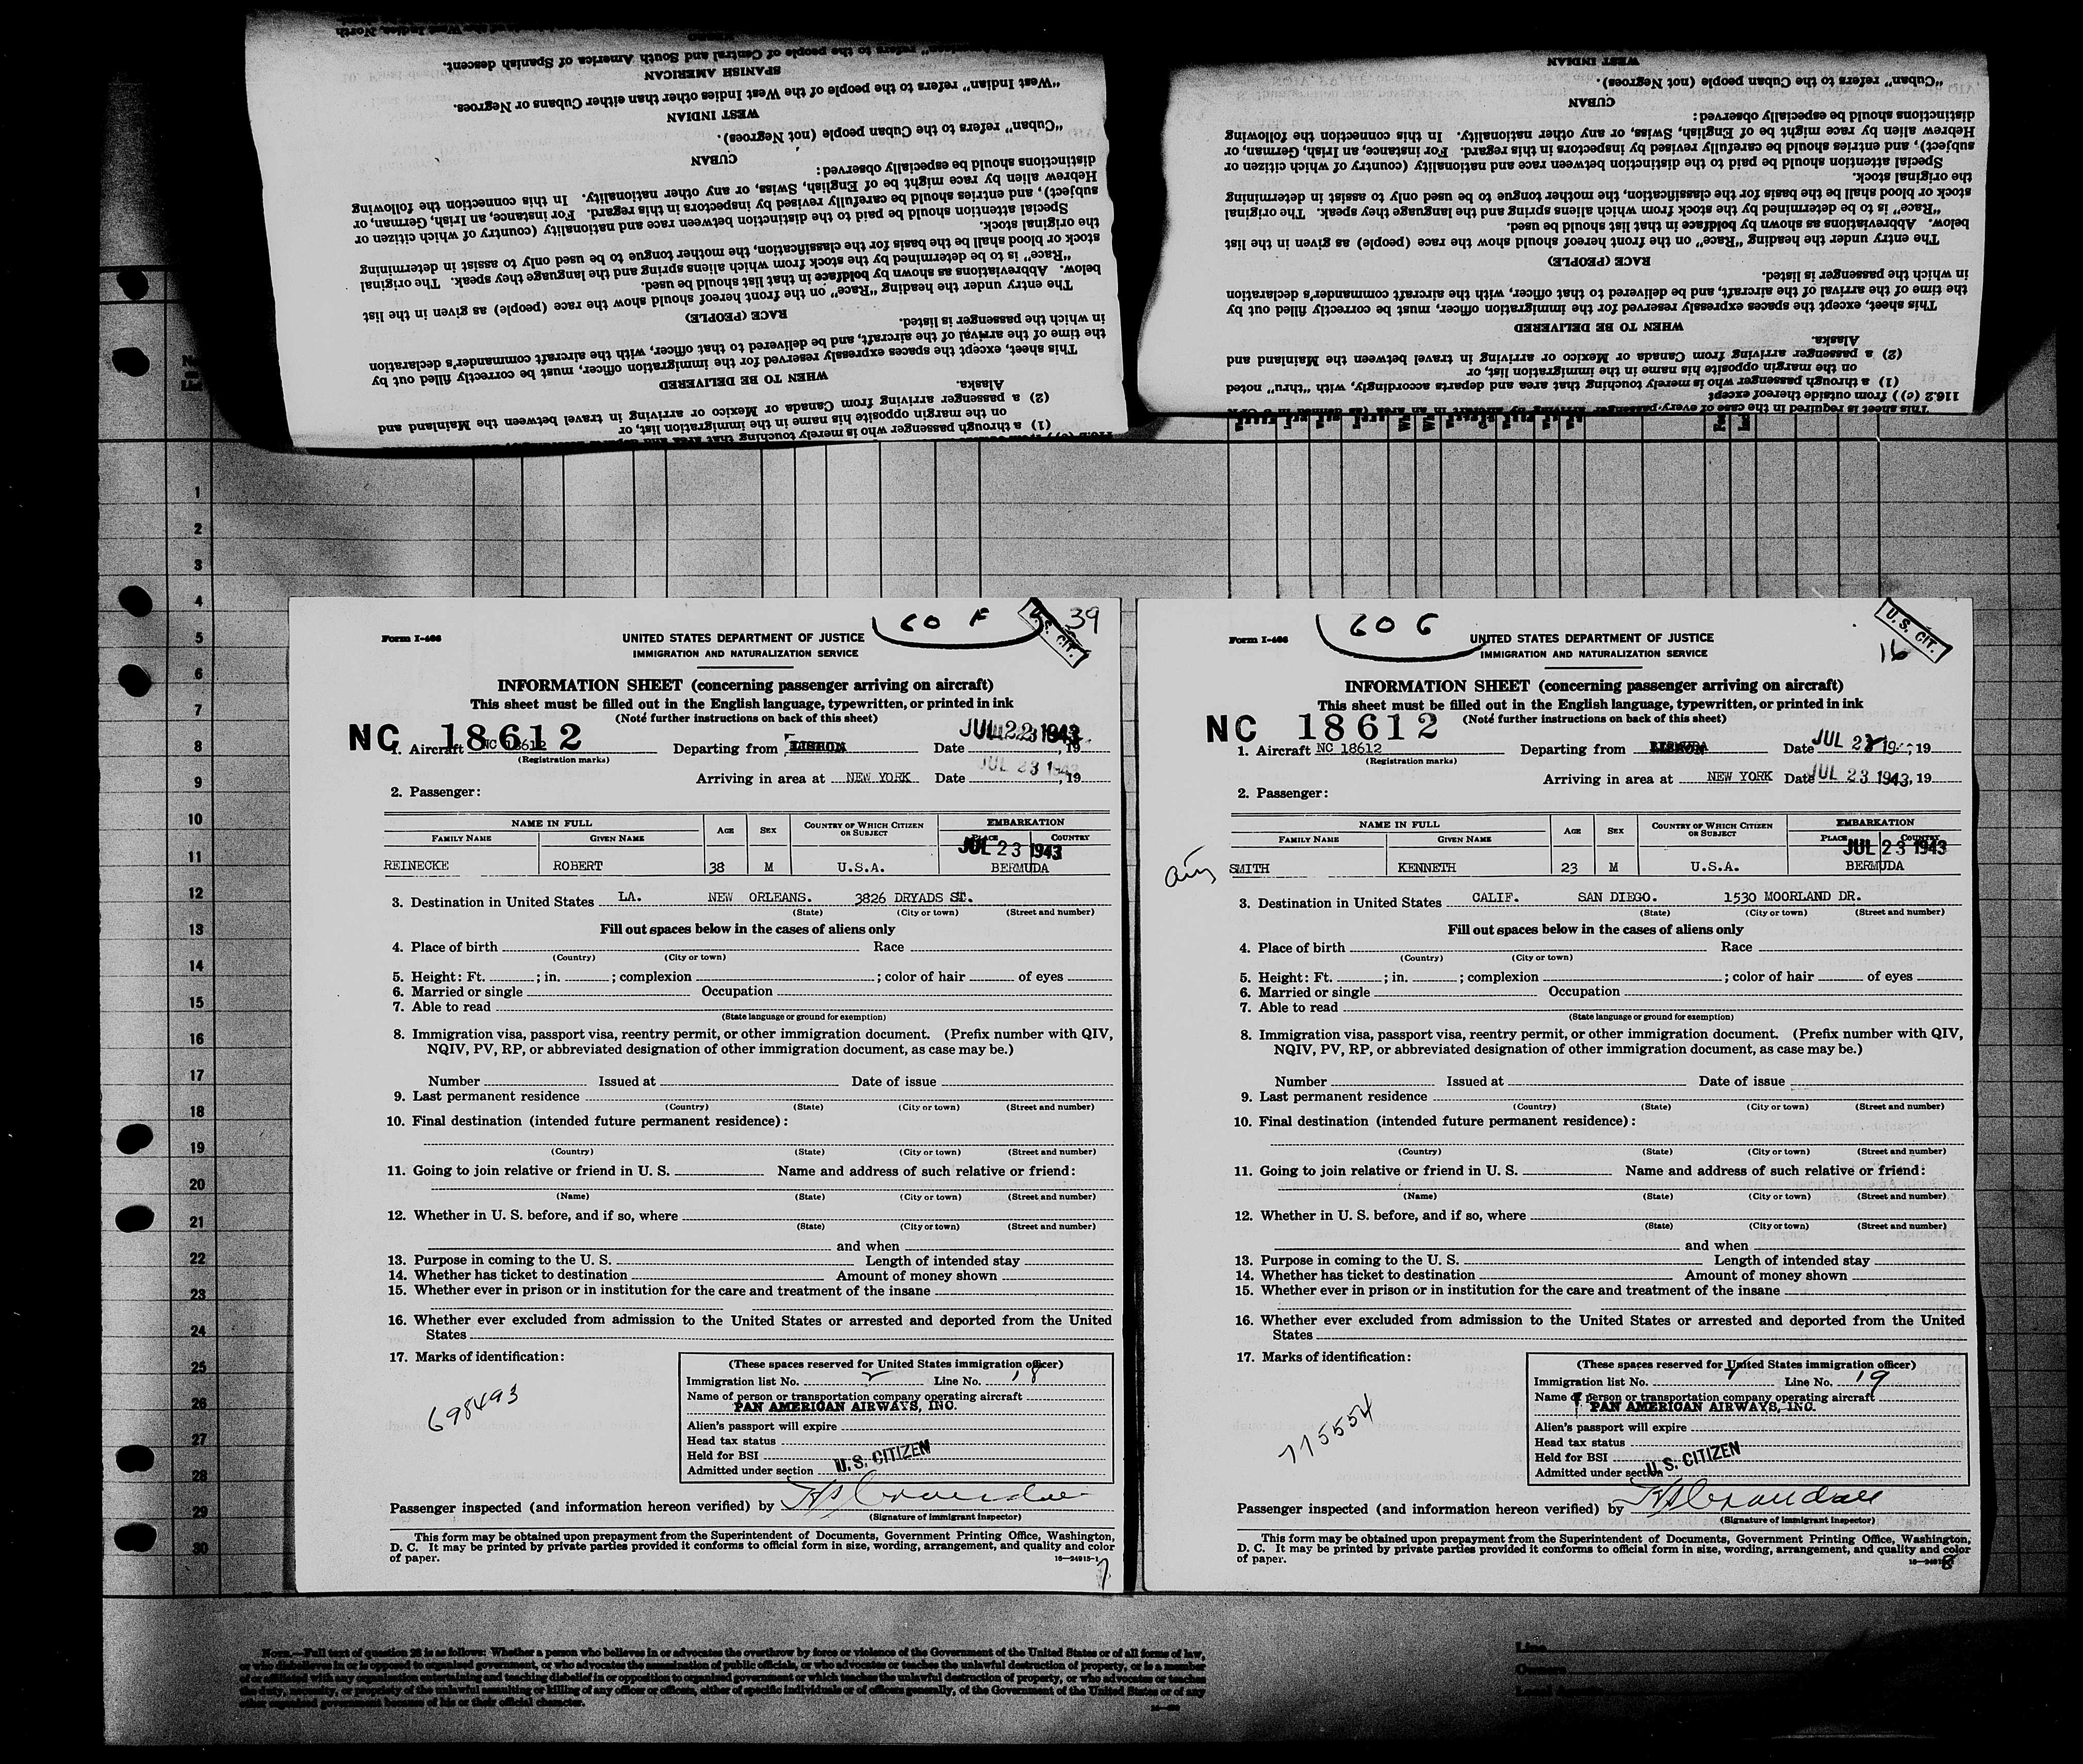 "West Indian" refers to the people of the West Indies other than either Cubans or Negroes.
SPANISH AMERICAN
refers to the people of Central and South America of Spanish descent.
(1) a through passenger who is merely touching that area and departs accordingly
on the margin opposite his name in the immigration list, or
(2) a passenger arriving from Canada or Mexico or arriving in travel between the Mainland and
Alaska.
WHEN TO BE DELIVERED
This sheet, except the spaces expressly reserved for the immigration officer, must be correctly filled out by
the time of the arrival of the aircraft, and be delivered to that officer, with the aircraft commander's declaration
in which the passenger is listed.
RACE (PEOPLE)
The entry under the heading "Race" on the front hereof should show the race (people) as given in the list
below. Abbreviations as shown by boldface in that list should be used.
"Race" is to be determined by the stock from which aliens spring and the language they speak. The original
stock or blood shall be the basis for the classification, the mother tongue to be used only to assist in determining
the original stock.
Special attention should be paid to the distinction between race and nationality (country of which citizen or
subject), and entries should be carefully revised by inspectors in this regard. For instance, an Irish, German, or
Hebrew alien by race might be of English, Swiss, or any other nationality. In this connection the following
distinctions should be especially observed:
CUBAN
"Cuban" refers to the Cuban people (not Negroes).
WEST INDIAN
This sheet is required in the case of every passenger arriving by aircraft in an area (as defined in
116.2 (c)) from outside thereof except
(1) a through passenger who is merely touching that area and departs accordingly, with "thru" noted
on the margin opposite his name in the immigration list, or
(2) a passenger arriving from Canada or Mexico or arriving in travel between the Mainland and
Alaska.
WHEN TO BE DELIVERED
This sheet, except the spaces expressly reserved for the immigration officer, must be correctly filled out by
the time of the arrival of the aircraft, and be delivered to that officer, with the aircraft commander's declaration
in which the passenger is listed.
RACE (PEOPLE)
The entry under the heading "Race" on the front hereof should show the race (people) as given in the list
below. Abbreviations as shown by boldface in that list should be used.
"Race" is to be determined by the stock from which aliens spring and the language they speak. The original
stock or blood shall be the basis for the classification, the mother tongue to be used only to assist in determining
the original stock.
Special attention should be paid to the distinction between race and nationality (country of which citizen or
subject), and entries should be carefully revised by inspectors in this regard. For instance, an Irish, German, or
Hebrew alien by race might be of English, Swiss, or any other nationality. In this connection the following
distinctions should be especially observed:
CUBAN
"Cuban" refers to the Cuban people (not Negroes).
WEST INDIAN
1
2
3
4
5
6
7
8
9
10
11
12
13
14
15
16
17
18
19
20
21
22
23
24
25
26
27
28
29
30
60 F
U.S. CIT.
39
Form I-466
UNITED STATES DEPARTMENT OF JUSTICE
IMMIGRATION AND NATURALIZATION SERVICE
INFORMATION SHEET (concerning passenger arriving on aircraft)
This sheet must be filled out in the English language, typewritten, or printed in ink
(Note further instructions on back of this sheet)
NC 18612
1. Aircraft NC 18612 Departing from LISBON Date JUL 22 1943, 19
(Registration marks)
Arriving in area at NEW YORK Date JUL 23 1943, 19
2. Passenger:
NAME IN FULL AGE SEX COUNTRY OF WHICH CITIZEN OR SUBJECT EMBARKATION
FAMILY NAME GIVEN NAME PLACE COUNTRY
JUL 23 1943
REINECKE ROBERT 38 M U.S.A. BERMUDA
3. Destination in United States LA. NEW ORLEANS. 3826 DRYADS ST.
(State) (City or town) (Street and number)
Fill out spaces below in the cases of aliens only
4. Place of birth Race
(Country) (City or town)
5. Height: Ft. ; in. ; complexion ; color of hair of eyes
6. Married or single Occupation
7. Able to read
(State language or ground for exemption)
8. Immigration visa, passport visa, reentry permit, or other immigration document. (Prefix number with QIV,
NQIV, PV, RP, or abbreviated designation of other immigration document, as case may be.)
Number Issued at Date of issue
9. Last permanent residence
(Country) (State) (City or town) (Street and number)
10. Final destination (intended future permanent residence):
(Country) (State) (City or town) (Street and number)
11. Going to join relative or friend in U. S. Name and address of such relative or friend:
(Name) (State) (City or town) (Street and number)
12. Whether in U. S. before, and if so, where
(State) (City or town) (Street and number)
and when
13. Purpose in coming to the U. S. Length of intended stay
14. Whether has ticket to destination Amount of money shown
15. Whether ever in prison or in institution for the care and treatment of the insane
16. Whether ever excluded from admission to the United States or arrested and deported from the United
States
17. Marks of identification:
698493
(These spaces reserved for United States immigration officer)
Immigration list No. 2 Line No. 18
Name of person or transportation company operating aircraft
PAN AMERICAN AIRWAYS, INC.
Alien's passport will expire
Head tax status
Held for BSI
Admitted under section U.S. CITIZEN
Passenger inspected (and information hereon verified) by
(Signature of immigrant inspector)
This form may be obtained upon prepayment from the Superintendent of Documents, Government Printing Office, Washington,
D. C. It may be printed by private parties provided it conforms to official form in size, wording, arrangement, and quality and color
of paper.
16—24915-1
7
60 G
U.S. CIT.
16
Form I-466
UNITED STATES DEPARTMENT OF JUSTICE
IMMIGRATION AND NATURALIZATION SERVICE
INFORMATION SHEET (concerning passenger arriving on aircraft)
This sheet must be filled out in the English language, typewritten, or printed in ink
(Note further instructions on back of this sheet)
NC 18612
1. Aircraft NC 18612 Departing from Date JUL 23 19, 19
(Registration marks)
Arriving in area at NEW YORK Date JUL 23 1943, 19
2. Passenger:
NAME IN FULL AGE SEX COUNTRY OF WHICH CITIZEN OR SUBJECT EMBARKATION
FAMILY NAME GIVEN NAME PLACE COUNTRY
JUL 23 1943
SMITH KENNETH 23 M U.S.A. BERMUDA
3. Destination in United States CALIF. SAN DIEGO. 1530 MOORLAND DR.
(State) (City or town) (Street and number)
Fill out spaces below in the cases of aliens only
4. Place of birth Race
(Country) (City or town)
5. Height: Ft. ; in. ; complexion ; color of hair of eyes
6. Married or single Occupation
7. Able to read
(State language or ground for exemption)
8. Immigration visa, passport visa, reentry permit, or other immigration document. (Prefix number with QIV,
NQIV, PV, RP, or abbreviated designation of other immigration document, as case may be.)
Number Issued at Date of issue
9. Last permanent residence
(Country) (State) (City or town) (Street and number)
10. Final destination (intended future permanent residence):
(Country) (State) (City or town) (Street and number)
11. Going to join relative or friend in U. S. Name and address of such relative or friend:
(Name) (State) (City or town) (Street and number)
12. Whether in U. S. before, and if so, where
(State) (City or town) (Street and number)
and when
13. Purpose in coming to the U. S. Length of intended stay
14. Whether has ticket to destination Amount of money shown
15. Whether ever in prison or in institution for the care and treatment of the insane
16. Whether ever excluded from admission to the United States or arrested and deported from the United
States
17. Marks of identification:
715554
(These spaces reserved for United States immigration officer)
Immigration list No. 2 Line No. 19
Name of person or transportation company operating aircraft
PAN AMERICAN AIRWAYS, INC.
Alien's passport will expire
Head tax status
Held for BSI
Admitted under section U.S. CITIZEN
Passenger inspected (and information hereon verified) by
(Signature of immigrant inspector)
This form may be obtained upon prepayment from the Superintendent of Documents, Government Printing Office, Washington,
D. C. It may be printed by private parties provided it conforms to official form in size, wording, arrangement, and quality and color
of paper.
8
NOTE.—Full text of question 28 is as follows: Whether a person who believes in or advocates the overthrow by force or violence of the Government of the United States or of all forms of law,